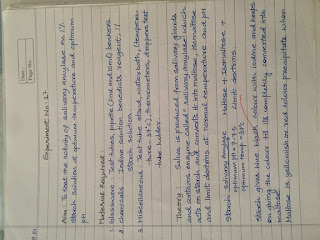 Date:
Page No:
Experiment No: 17
Aim: To test the activity of salivary amylase on 1%
starch solution at optimum temperature and optimum
pH.
Material Required:
1. Glassware: Test tubes, pipette (1ml and 10ml) beakers
2. Chemicals: Iodine solution benedicts reagent, 1%
starch solution
3. Miscellaneous: Test tube stand, water bath, (tempera-
ture - 37°c), thermometers, droppers test
tube holders.
Theory: Saliva is produced from salivary glands
and contains an enzyme called salivary amylase which
acts on starch and converts it into maltose, isomaltose
and limit dextrins at normal temperature and pH
Starch Salivary Amylase Maltose + Isomaltose +
optimum pH = 7.45 Limit dextrins
optimum temp = 37°C
Starch gives blue black colour with iodine and keeps
on giving the colour till its completely converted into
maltose
Maltose is yellowish or red colour precipitate when